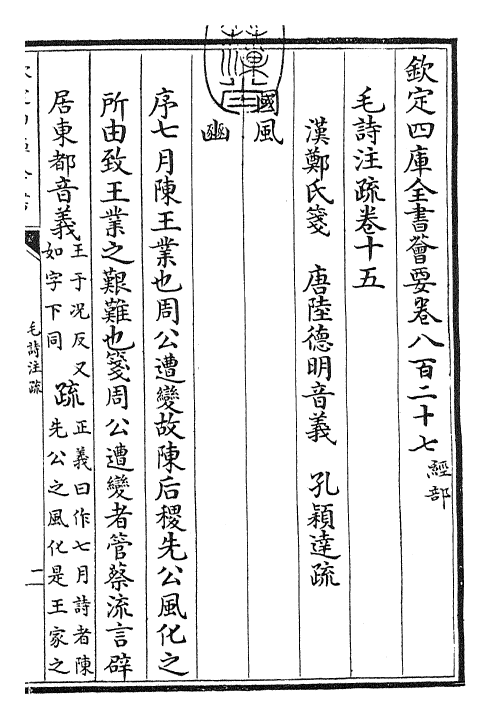 欽定四庫全書薈要卷八百二十七 經部
毛詩注疏卷十五
漢鄭氏箋 唐陸德明音義 孔穎達疏
國風
豳
序七月陳王業也周公遭變故陳后稷先公風化之
所由致王業之艱難也箋周公遭變者管蔡流言辟
居東都音義王于况反又如字下同疏正義曰作七月詩者陳先公之風化是王家之
毛詩注疏